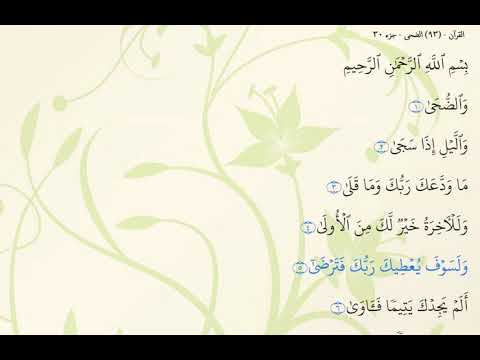 القرآن - (٩٣) الضحى - جزء ٣٠
بِسْمِ ٱللَّهِ ٱلرَّحْمَٰنِ ٱلرَّحِيمِ
وَٱلضُّحَىٰ ١
وَٱلَّيْلِ إِذَا سَجَىٰ ٢
مَا وَدَّعَكَ رَبُّكَ وَمَا قَلَىٰ ٣
وَلَلْءَاخِرَةُ خَيْرٌ لَّكَ مِنَ ٱلْأُولَىٰ ٤
وَلَسَوْفَ يُعْطِيكَ رَبُّكَ فَتَرْضَىٰٓ ٥
أَلَمْ يَجِدْكَ يَتِيمًا فَـَٔاوَىٰ ٦